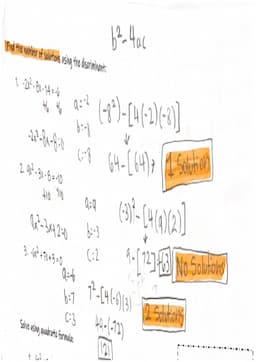 b² - 4ac
Find the number of solutions using the discriminant:
1. -2x² - 8x - 14 = -6
+6 +6
a = -2
(-8²) - [4(-2)(-8)]
b = -8
-2x² - 8x - 8 = 0
c = -8
64 - [64] →
1 Solution
2. 9x² - 3x - 8 = -10
+10 +10
a = 9
(-3)² - [4(9)(2)]
9x² - 3x + 2 = 0
b = -3
c = 2
9 - [72] = -63
No Solutions
3. -6x² + 7x + 3 = 0
a = -6
b = 7
7² - [4(-6)(3)]
c = 3
49 - (-72)
2 Solutions
121
Solve using quadratic formula: